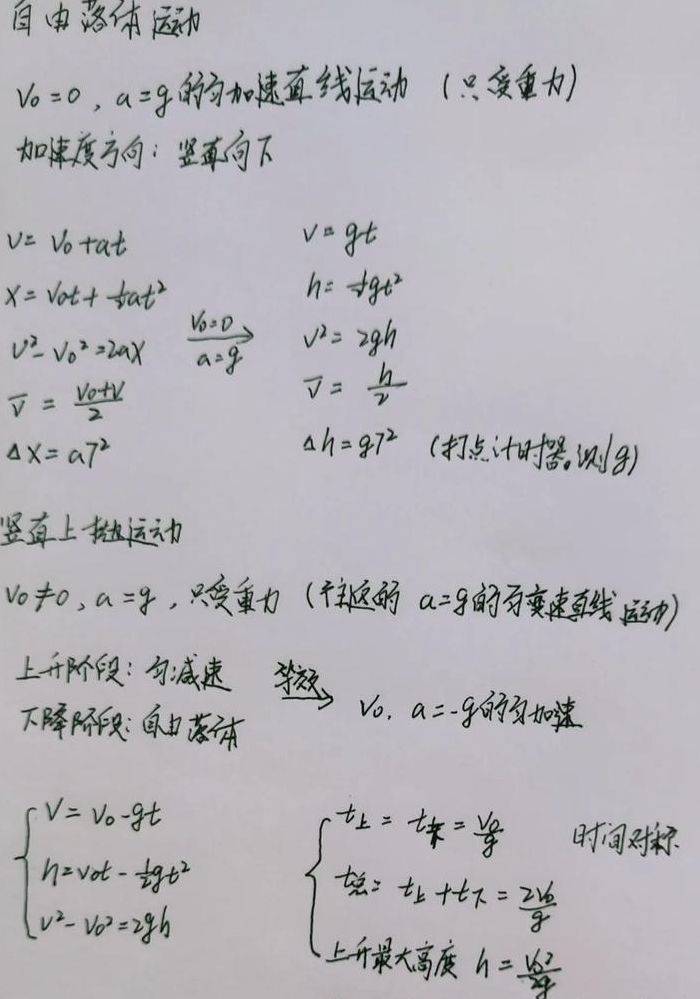 自由落体运动
V₀=0, a=g的匀加速直线运动 (只受重力)
加速度方向: 竖直向下
V=V₀+at
X=V₀t+½at²
V²-V₀²=2aX
V̄=(V₀+V)/2
ΔX=aT²
V₀=0
a=g →
V=gt
h=½gt²
V²=2gh
V̄=h/2
Δh=gT² (打点计时器。测g)
竖直上抛运动
V₀≠0, a=g, 只受重力 (往返的 a=g的匀变速直线运动)
上升阶段: 匀减速
下降阶段: 自由落体
等效 →
V₀. a=-g的匀加速
V=V₀-gt
h=V₀t-½gt²
V²-V₀²=2gh
t上=t下=V₀/g 时间对称
t总=t上+t下=2V₀/g
上升最大高度 h=V₀²/2g